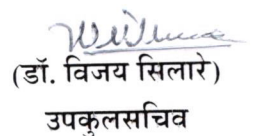 (डॉ. विजय सिलारे)
उपकुलसचिव